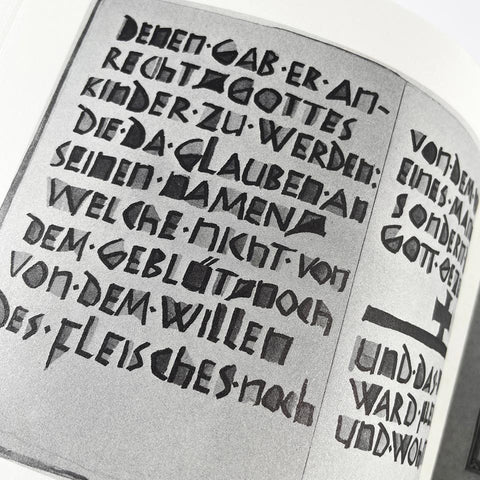 DENEN·GAB·ER·AN-
RECHT GOTTES
KINDER·ZU·WERDEN·
DIE·DA·GLAUBEN·AN
SEINEN·NAMEN
WELCHE·NICHT·VON
DEM·GEBLÜT NOCH
VON·DEM·WILLEN
DES·FLEISCHES·NOCH
VON·DEM
EINES
SONDERN
GOTT
UND·DAS
WARD
UND